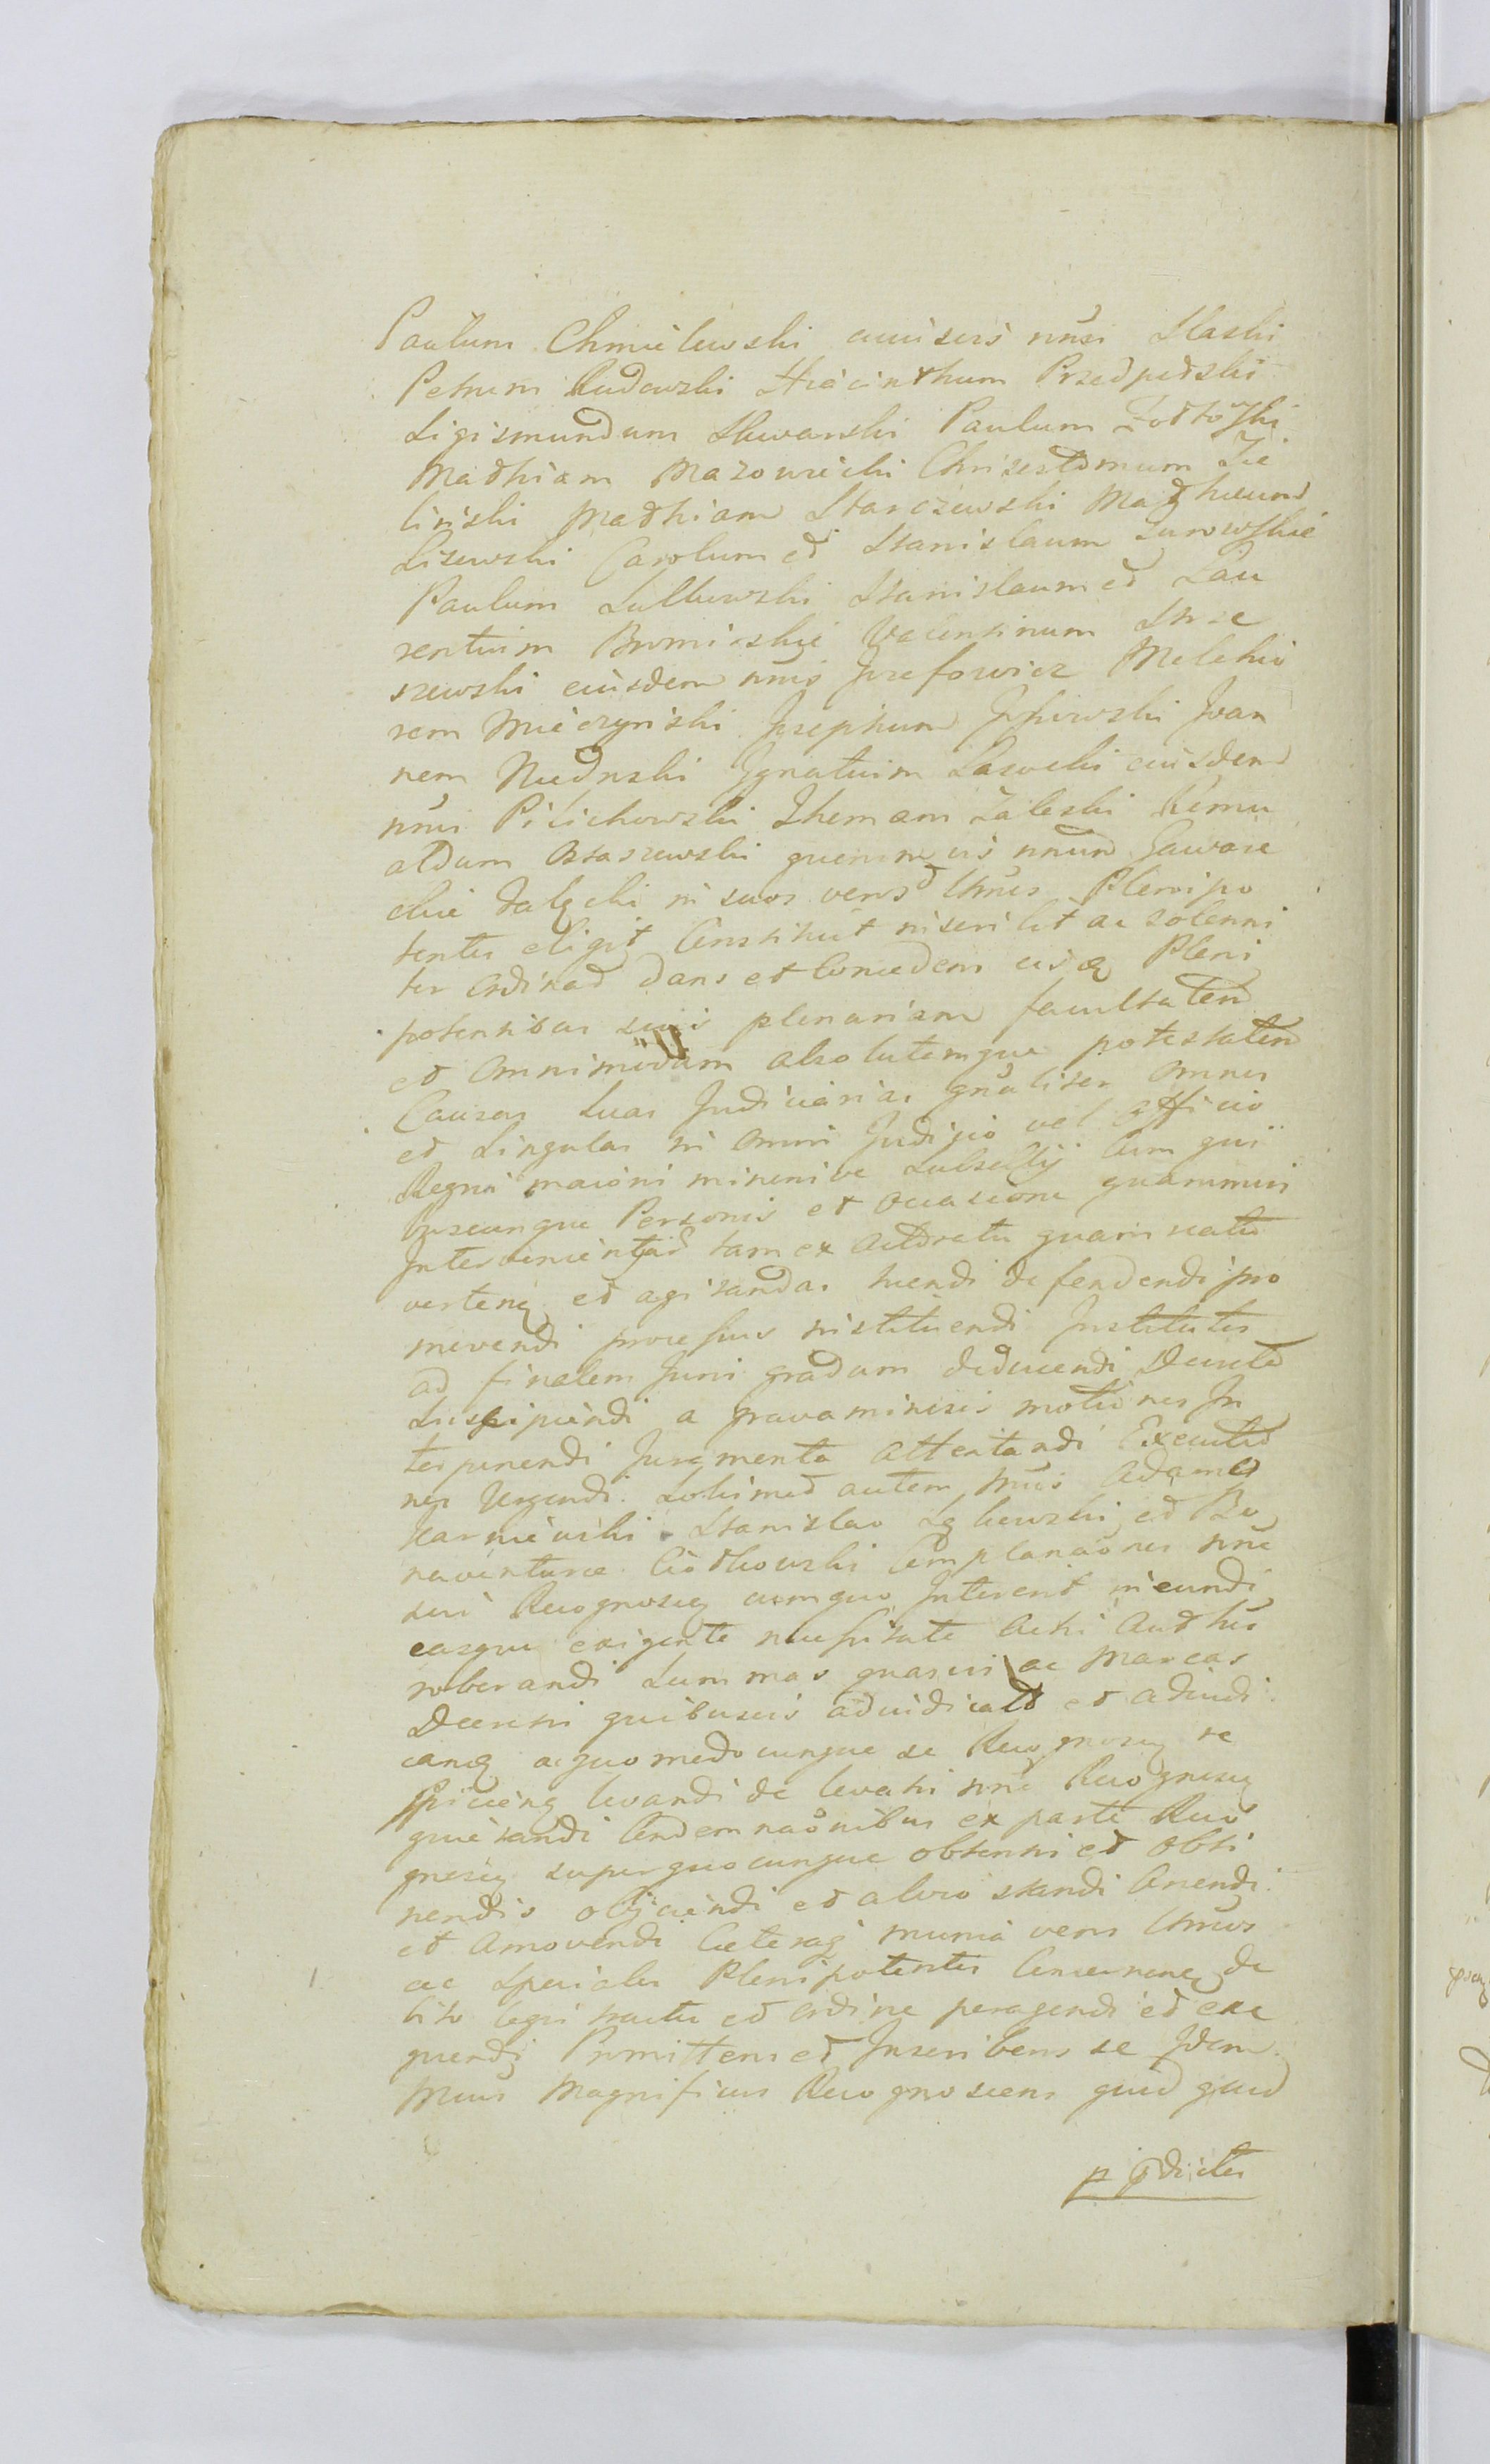 Paulum Chmielewski cuiusvis nnis Slaski
Petrum Rudowski Hiacinthum Przedpełski
Sigismundum Sliwanski Paulum Żółtowski
Mathiam Mazowiecki Chrisostomum Zie
linski Mathiam Starczewski Mathæum
Lisewski Carolum et Stanislaum Zurowskie
Paulum Sulkowski Stanislaum et Lau
rentium Bromirskie Valentinum Strze
szewski eiusdem nnis Jozefowicz Melchio
rem Mieczynski Josephum Gossowski Joan
nem Nudnski Ignatium Lasocki eiusdem
nnis Pilichowski Thomam Zaleski Romu
aldum Ostaszewski quemvis nnum Gaware
ckie Załęcki in suos veros ltmos Plenipo
tentes eligit Constituit inscribit ac solenni
ter Ordinat dans et Concedens eisdem Pleni
potentibus suis plenariam facultatem
et Omnimodam absolutamque potestatem
Causas Suas Judiciarias gnaliter Omnes
et Singulas in Omni Judicio vel Officio
Regni maiori minorive Subsellij Cum qui
buscunque Personis et Occasione quarumvis
Intervenientium tam ex Actoratu quam reatu
verten et agitandas tuendi defendendi pro
movendi processus instituendi Institutos
ad finalem Juris gradum deducendi Decreta
Suscipiendi a gravaminosis motiones In
terponendi Juramenta attentandi Executio
nes Urgendi. Solimet autem nnis Adamo
Karnicki Stanislao Łękowski et Bo
naventuræ Ciołkowski Complanaones nne
sui Recognoscen cumquo Intererit ineundi
easque exigente necessitate Acti Authen
roborandi Summas quasvis ac Marcas
Decretis quibusvis adiudicatas et adiudi
candas aquomodocunque se Recognoscen re
spicien levandi de levatis nne Recognoscen
quietandi Condemnaonibus ex parte Reco
gnoscen superquocunque obtentis et obti
nendis objiciendi et alvio standi Cavendi
et Amovendi Cæteraq munia veros ltmos
ac Speciales Plenipotentes Concernen de
bito legis tractu et ordine peragendi et exe
quendi Promittens et Inscribens se Idem
Mnus Magnificus Recognoscens quid quid
p pdictos